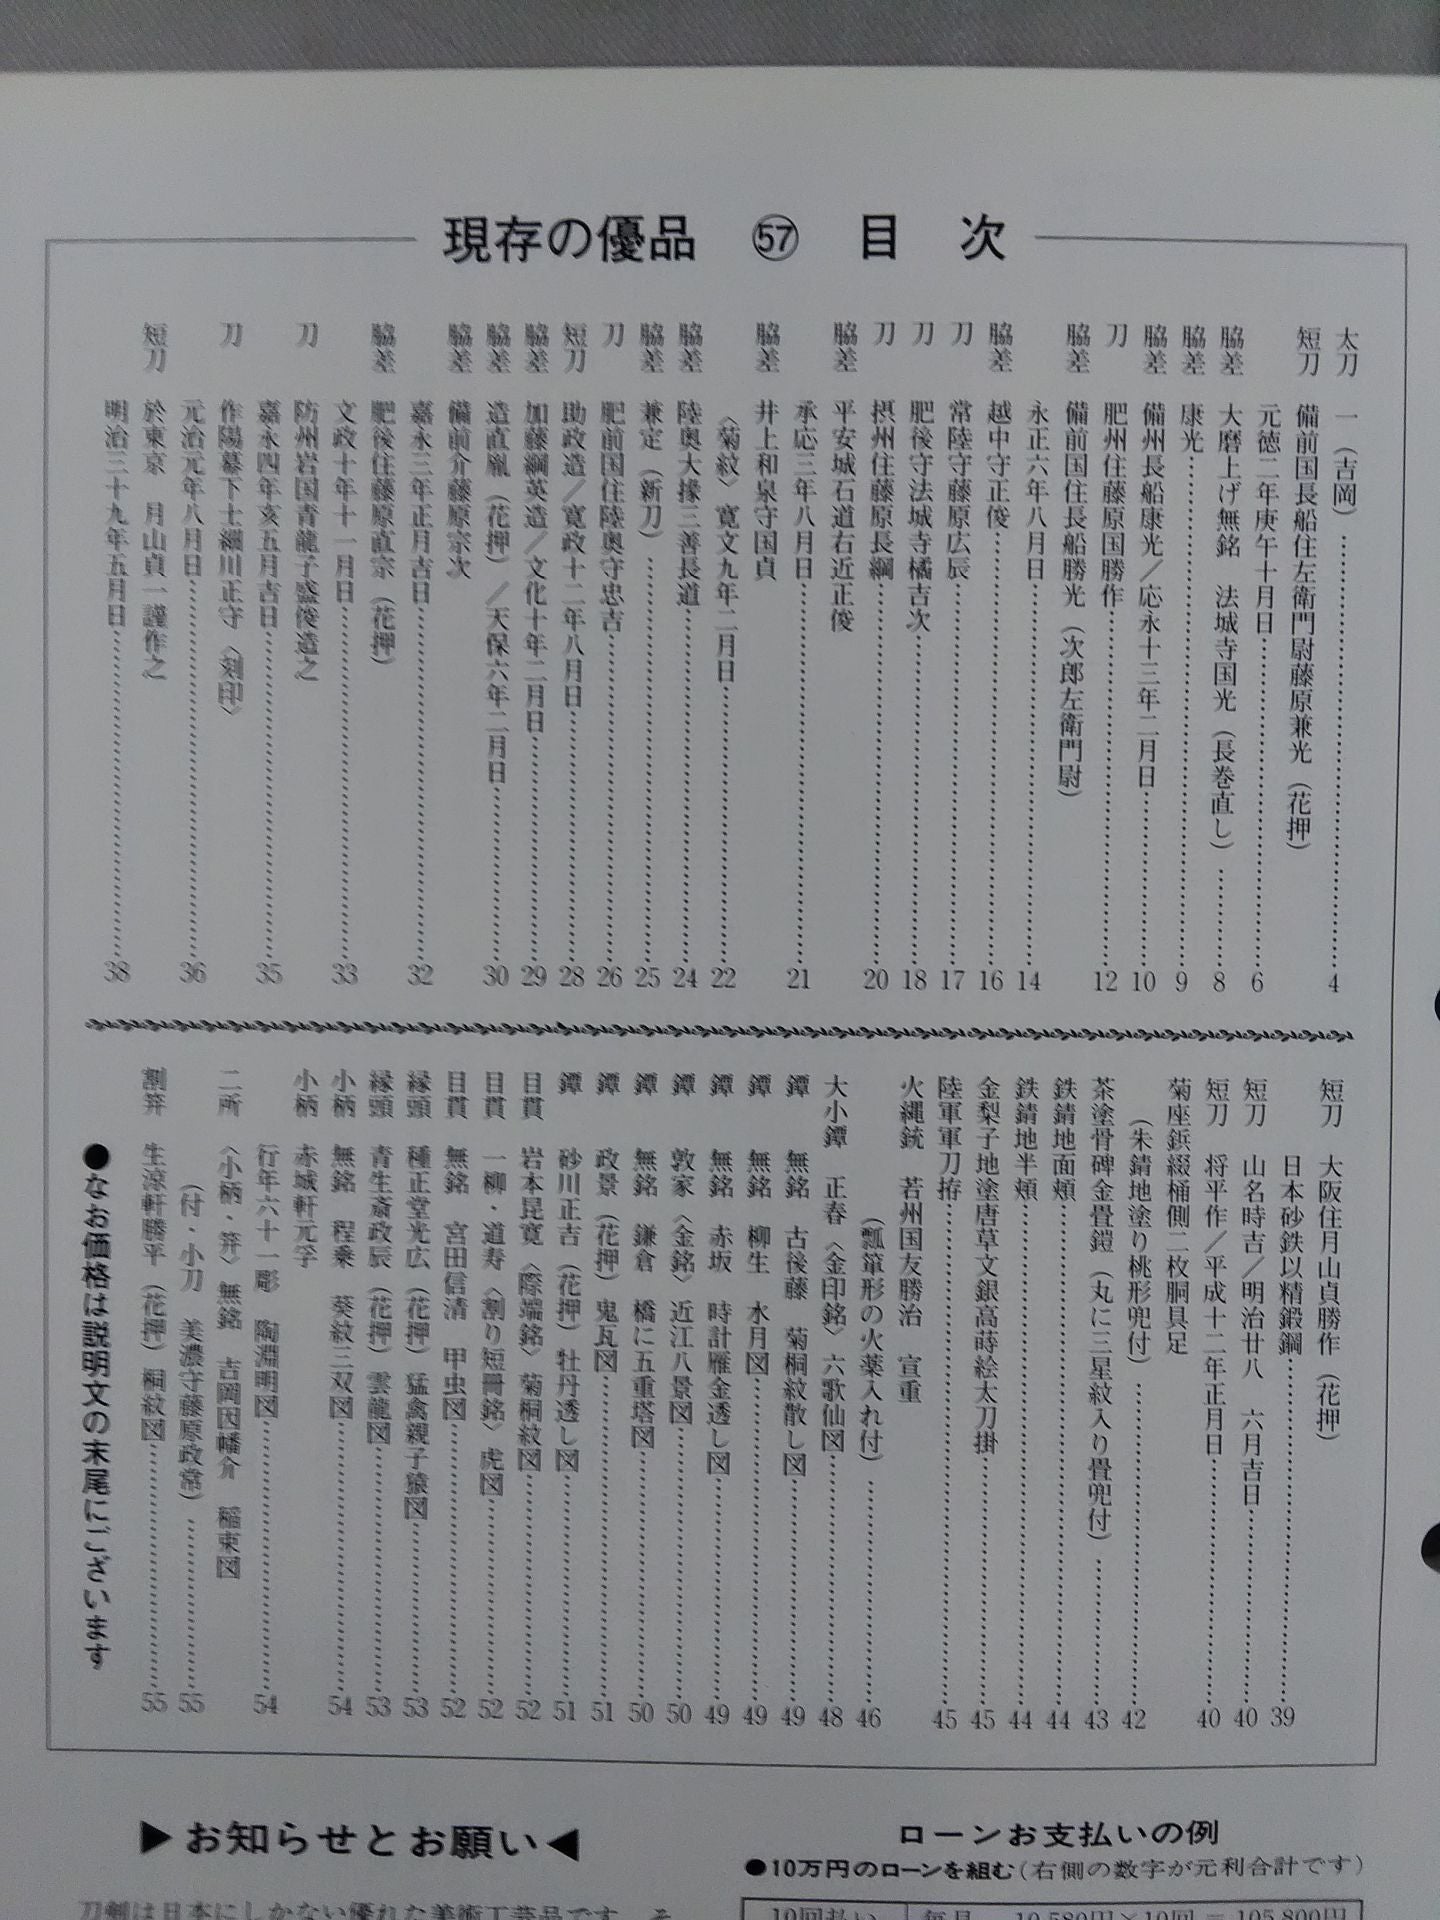 現存の優品 ㊼ 目次
太刀 一（吉岡）……4
短刀 備前国長船住左衛門尉藤原兼光（花押）
元徳二年庚午十月日……6
脇差 大磨上げ無銘 法城寺国光（長巻直し）……8
脇差 康光……9
脇差 備州長船康光／応永十三年二月日……10
刀 肥州住藤原国勝作……12
脇差 備前国住長船勝光（次郎左衛門尉）
永正六年八月日……14
脇差 越中守正俊……16
刀 常陸守藤原広辰……17
刀 肥後守法城寺橘吉次……18
刀 摂州住藤原長綱……20
脇差 平安城石道右近正俊
承応三年八月日……21
脇差 井上和泉守国貞
〈菊紋〉寛文九年二月日……22
脇差 陸奥大掾三善長道……24
脇差 兼定（新刀）……25
刀 肥前国住陸奥守忠吉……26
短刀 助政造／寛政十二年八月日……28
脇差 加藤綱英造／文化十年二月日……29
脇差 造直胤（花押）／天保六年二月日……30
脇差 備前介藤原宗次
嘉永三年正月吉日……32
脇差 肥後住藤原直宗（花押）
文政十年十一月日……33
刀 防州岩国青龍子盛俊造之
嘉永四年亥五月吉日……35
刀 作陽幕下士細川正守〈刻印〉
元治元年八月日……36
短刀 於東京 月山貞一謹作之
明治三十九年五月日……38
短刀 大阪住月山貞勝作（花押）
日本砂鉄以精鍛鋼……39
短刀 山名時吉／明治廿八 六月吉日……40
短刀 将平作／平成十二年正月日……40
菊座鋲綴桶側二枚胴具足
（朱錆地塗り桃形兜付）……42
茶塗骨碑金畳鎧（丸に三星紋入り畳兜付）……43
鉄錆地面頬……44
鉄錆地半頬……44
金梨子地塗唐草文銀高蒔絵太刀掛……45
陸軍軍刀拵……45
火縄銃 若州国友勝治 宣重
（瓢箪形の火薬入れ付）……46
大小鐔 正春〈金印銘〉六歌仙図……48
鐔 無銘 古後藤 菊桐紋散し図……49
鐔 無銘 柳生 水月図……49
鐔 無銘 赤坂 時計雁金透し図……49
鐔 敦家〈金銘〉近江八景図……50
鐔 無銘 鎌倉 橋に五重塔図……50
鐔 政景（花押）鬼瓦図……51
鐔 砂川正吉（花押）牡丹透し図……51
目貫 岩本昆寛〈際端銘〉菊桐紋図……52
目貫 一柳・道寿〈割り短冊銘〉虎図……52
目貫 無銘 宮田信清 甲虫図……52
縁頭 種正堂光広（花押）猛禽親子猿図……53
縁頭 青生斎政辰（花押）雲龍図……53
小柄 無銘 程乗 葵紋三双図……54
小柄 赤城軒元孚
行年六十一彫 陶淵明図……54
二所 〈小柄・笄〉無銘 吉岡因幡介 稲束図
（付・小刀 美濃守藤原政常）……55
割笄 生涼軒勝平（花押）桐紋図……55
●なお価格は説明文の末尾にございます
▶お知らせとお願い◀
刀剣は日本にしかない優れた美術工芸品です。そ
ローンお支払いの例
●10万円のローンを組む（右側の数字が元利合計です）
10回払い 毎月 10,580円×10回＝105,800円